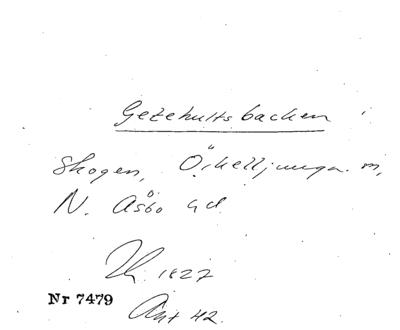 Gezehultsbacken
Skogen, Örkelljunga m,
N. Åsbo hd
1827
Nr 7479
Ant 42.